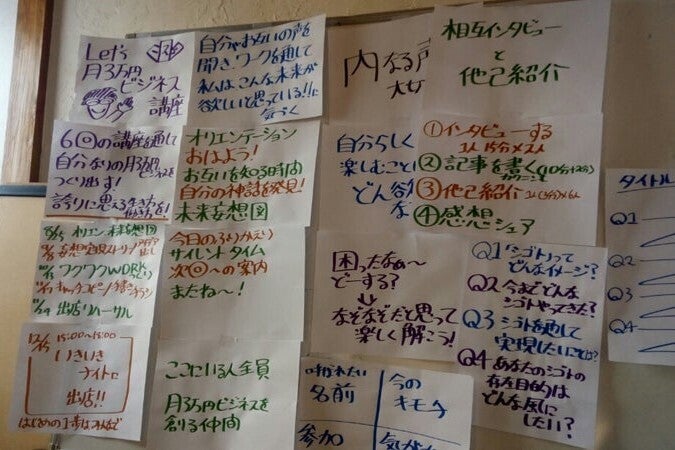 Let's
月3万円
ビジネス
講座
自分やお互いの声を
聞き、ワークを通して
私はこんな未来が
欲しいと思っている!!に
気づく
内なる声
大女
相互インタビュー
と
他己紹介
6回の講座を通して
自分なりの月3万円ビジネスを
つくり出す!
誇りに思える生き方
オリエンテーション
おはよう!
お互いを知る時間
自分の神話を発見!
未来妄想図
自分らしく
楽しむこと
どん欲
な
①インタビューする
1人15分×2人
②記事を書く
③他己紹介
④感想シェア
タイトル
Q1
Q2
Q3
Q4
オリエン 未来妄想図
妄想実現ストーリー
ワクワクWORK
キャッチコピー
出店リハーサル
今日のふりかえり
サイレントタイム
次回への案内
またね〜!
困ったなぁ〜
どーする?
↓
なぞなぞだと思って
楽しく解こう!
Q1 シゴトって
どんなイメージ?
Q2 今までどんな
シゴトやってきた?
Q3 シゴトを通して
実現したいことは?
Q4 あなたのシゴトの
存在目的は
どんな風に
したい?
15:00〜18:00
いきいき
ナイトに
出店!!
はじめの1歩はみんなで
ここにいる人全員
月3万円ビジネスを
創る仲間
呼ばれたい
名前
今の
キモチ
参加